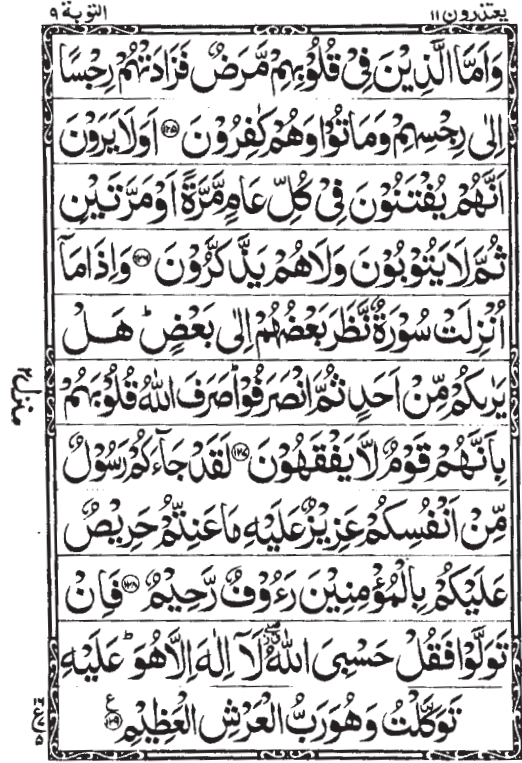 يعتذرون ١١
التوبة ٩
وَاَمَّا الَّذِيْنَ فِىْ قُلُوْبِهِمْ مَّرَضٌ فَزَادَتْهُمْ رِجْسًا
اِلٰى رِجْسِهِمْ وَمَاتُوْا وَهُمْ كٰفِرُوْنَ ۝١٢٥ اَوَلَا يَرَوْنَ
اَنَّهُمْ يُفْتَنُوْنَ فِىْ كُلِّ عَامٍ مَّرَّةً اَوْ مَرَّتَيْنِ
ثُمَّ لَا يَتُوْبُوْنَ وَلَا هُمْ يَذَّكَّرُوْنَ ۝١٢٦ وَاِذَا مَاۤ
اُنْزِلَتْ سُوْرَةٌ نَّظَرَ بَعْضُهُمْ اِلٰى بَعْضٍ ؕ هَلْ
يَرٰىكُمْ مِّنْ اَحَدٍ ثُمَّ انْصَرَفُوْا ؕ صَرَفَ اللّٰهُ قُلُوْبَهُمْ
بِاَنَّهُمْ قَوْمٌ لَّا يَفْقَهُوْنَ ۝١٢٧ لَقَدْ جَآءَكُمْ رَسُوْلٌ
مِّنْ اَنْفُسِكُمْ عَزِيْزٌ عَلَيْهِ مَا عَنِتُّمْ حَرِيْصٌ
عَلَيْكُمْ بِالْمُؤْمِنِيْنَ رَءُوْفٌ رَّحِيْمٌ ۝١٢٨ فَاِنْ
تَوَلَّوْا فَقُلْ حَسْبِىَ اللّٰهُ ۖ لَاۤ اِلٰهَ اِلَّا هُوَ ؕ عَلَيْهِ
تَوَكَّلْتُ وَهُوَ رَبُّ الْعَرْشِ الْعَظِيْمِ ۝١٢٩ ع
منزل ٢